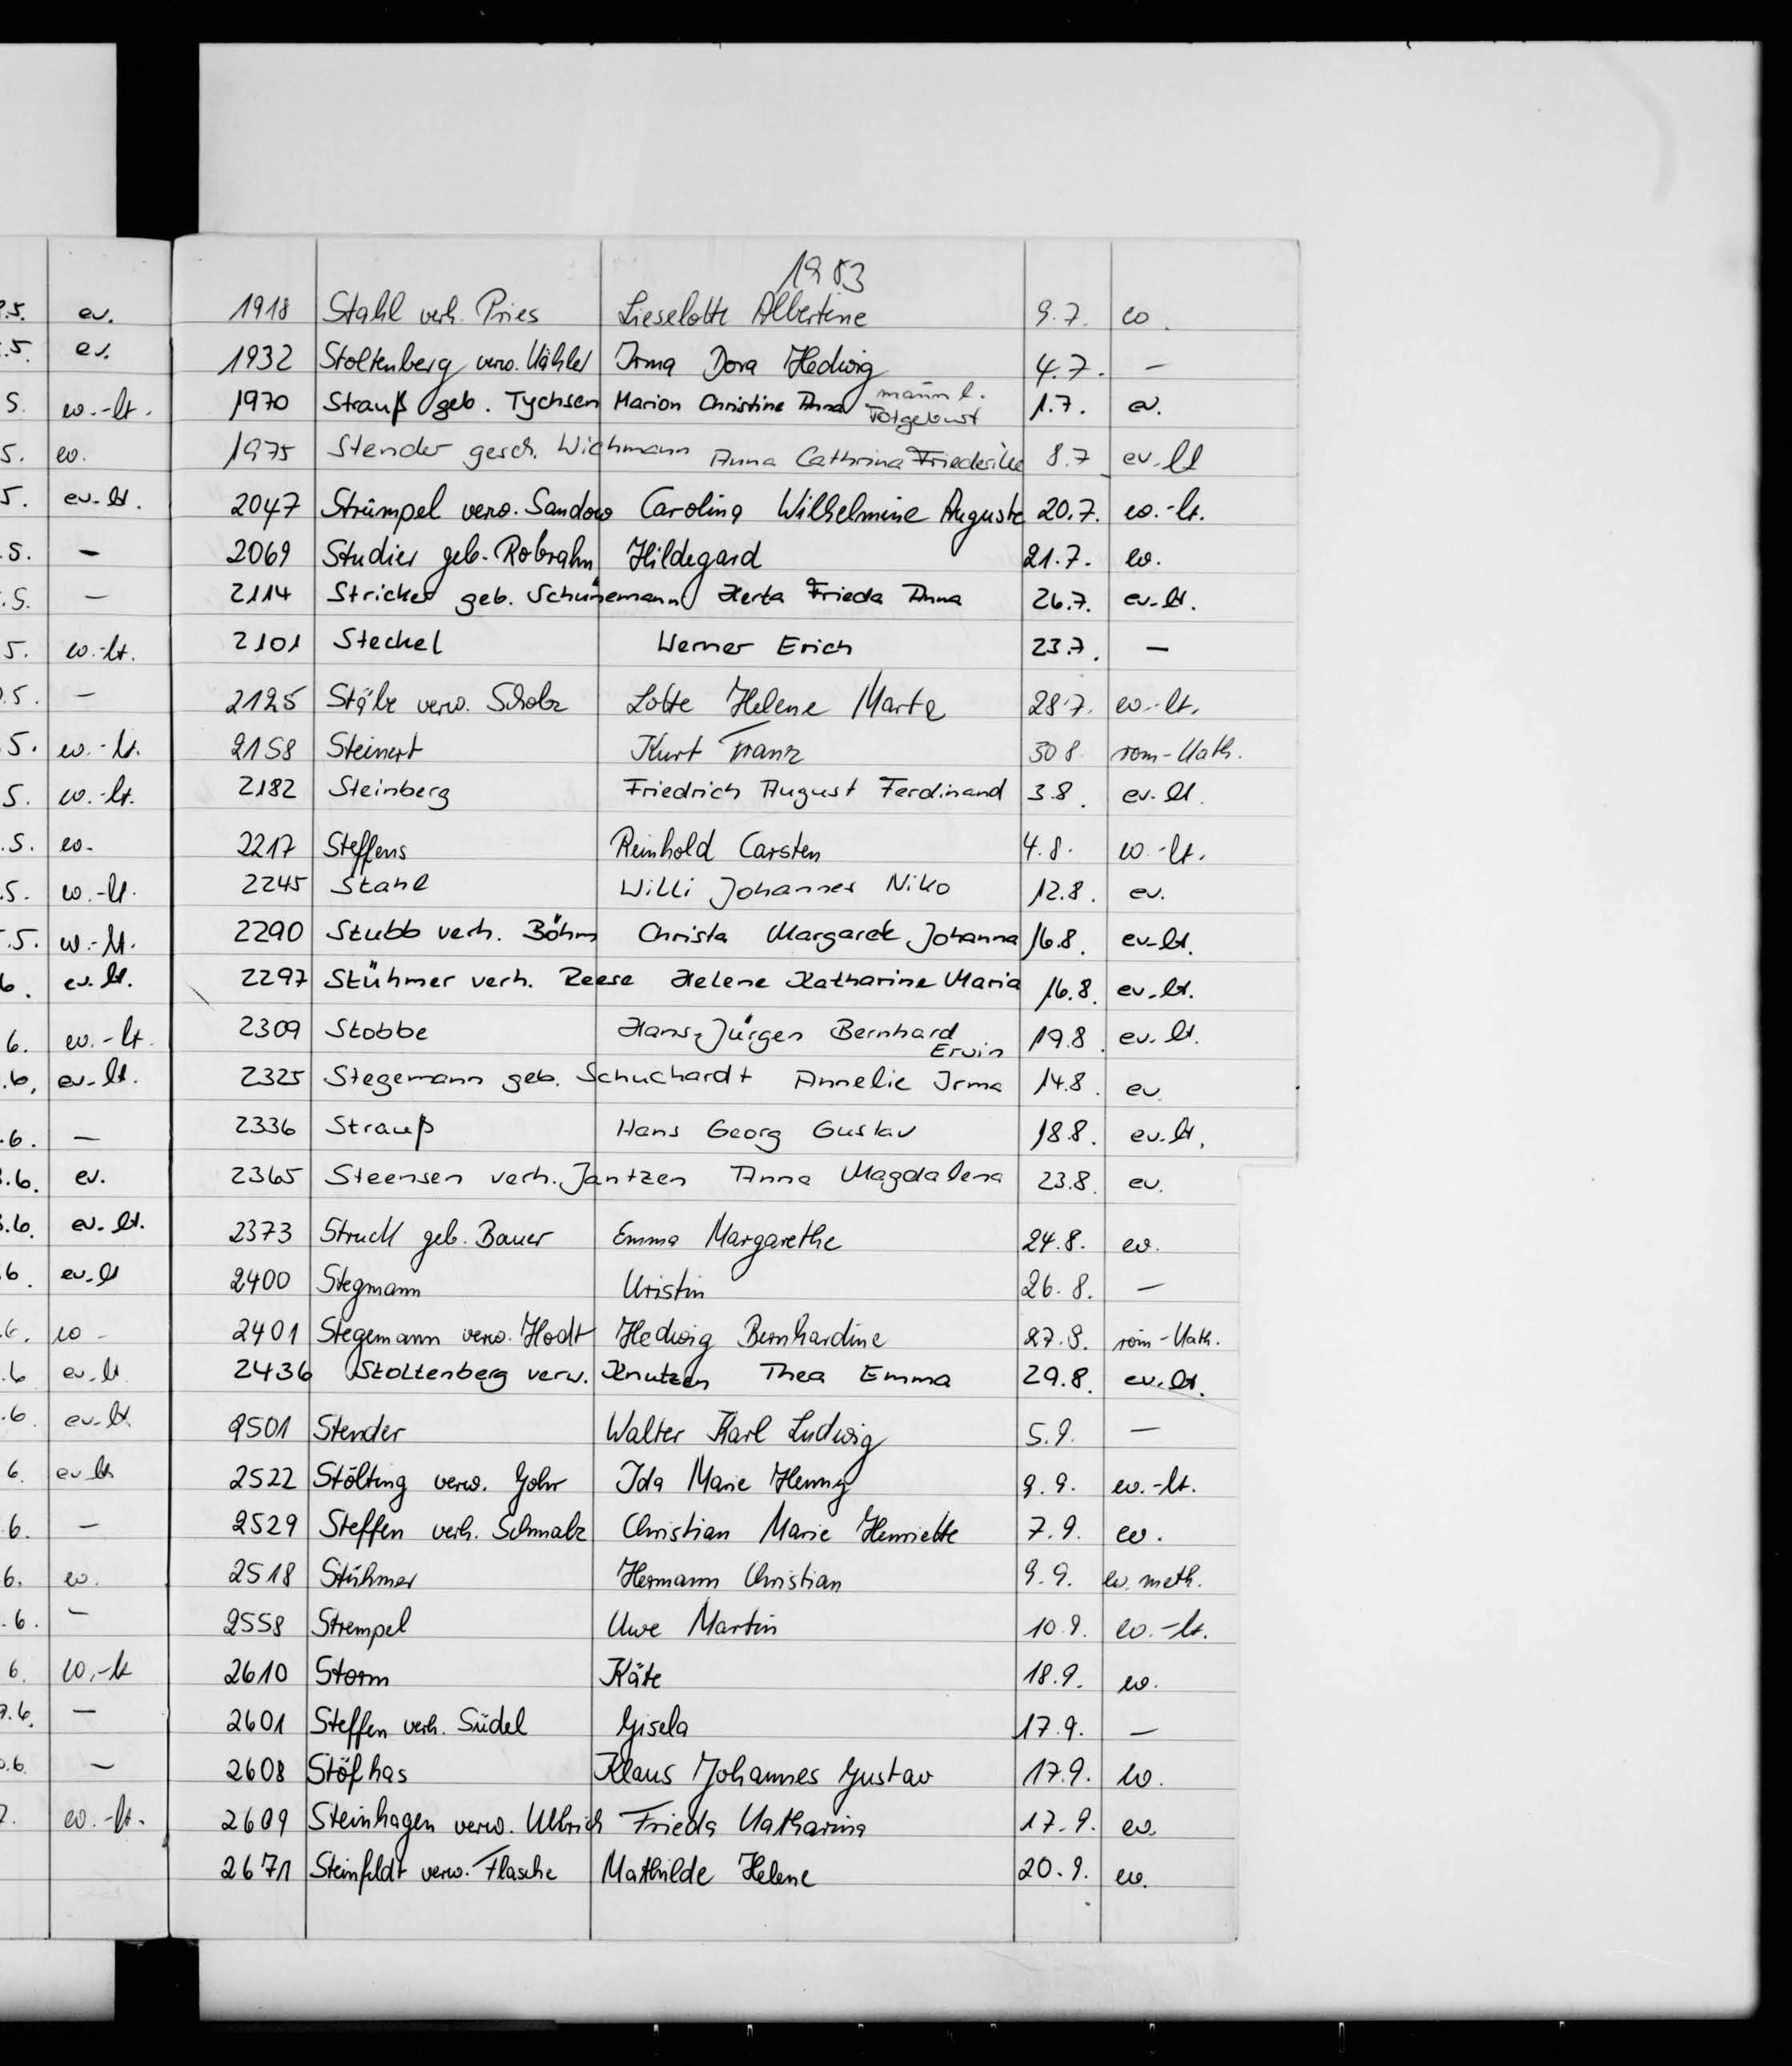 1983
1918 Stahl verh. Pries Lieselotte Albertine 9.7. ev.
1932 Stoltenberg verw. Kähler Irma Dora Hedwig 4.7. —
1970 Strauß geb. Tychsen Marion Christine Anna männl. Totgeburt 1.7. ev.
1975 Stender gesch. Wichmann Anna Cathrina Friederike 8.7 ev.-lt
2047 Strümpel verw. Sandow Carolina Wilhelmine Auguste 20.7. ev.-lt.
2069 Studier geb. Robrahn Hildegard 21.7. ev.
2114 Stricker geb. Schünemann Herta Frieda Anna 26.7. ev-lt.
2101 Steckel Werner Erich 23.7. —
2125 Stäbe verw. Scholz Lotte Helene Marta 28.7. ev.-lt.
2158 Steinert Kurt Franz 30 8. röm-Kath.
2182 Steinberg Friedrich August Ferdinand 3.8. ev.lt.
2217 Steffens Reinhold Carsten 4.8. ev.-lt.
2245 Stahl Willi Johannes Niko 12.8. ev.
2290 Stubb verh. Böhm Christa Margaret Johanna 16.8. ev-lt.
2297 Stühmer verh. Reese Helene Katharine Maria 16.8. ev.-lt.
2309 Stobbe Hans-Jürgen Bernhard Erwin 19.8. ev.lt.
2325 Stegemann geb. Schuchardt Annelie Irma 14.8. ev
2336 Strauß Hans Georg Gustav 18.8. ev.lt.
2365 Steensen verh. Jantzen Anna Magdalena 23.8. ev.
2373 Struck geb. Bauer Emma Margarethe 24.8. ev.
2400 Stegmann Kristin 26.8. —
2401 Stegemann verw. Hodt Hedwig Bernhardine 27.8. röm-Kath.
2436 Stoltenberg verw. Knutzen Thea Emma 29.8. ev.lt.
2501 Stender Walter Karl Ludwig 5.9. —
2522 Stölting verw. Gohr Ida Marie Henny 9.9. ev.-lt.
2529 Steffen verh. Schmalz Christian Marie Henriette 7.9. ev.
2518 Stühmer Hermann Christian 9.9. ev. meth.
2558 Strempel Uwe Martin 10.9. ev.-lt.
2610 Storm Käte 18.9. ev.
2601 Steffen verh. Südel Gisela 17.9. —
2608 Stöfhas Klaus Johannes Gustav 17.9. ev.
2609 Steinhagen verw. Ullrich Frieda Katharina 17.9. ev.
2671 Steinfeldt verw. Flasche Mathilde Helene 20.9. ev.